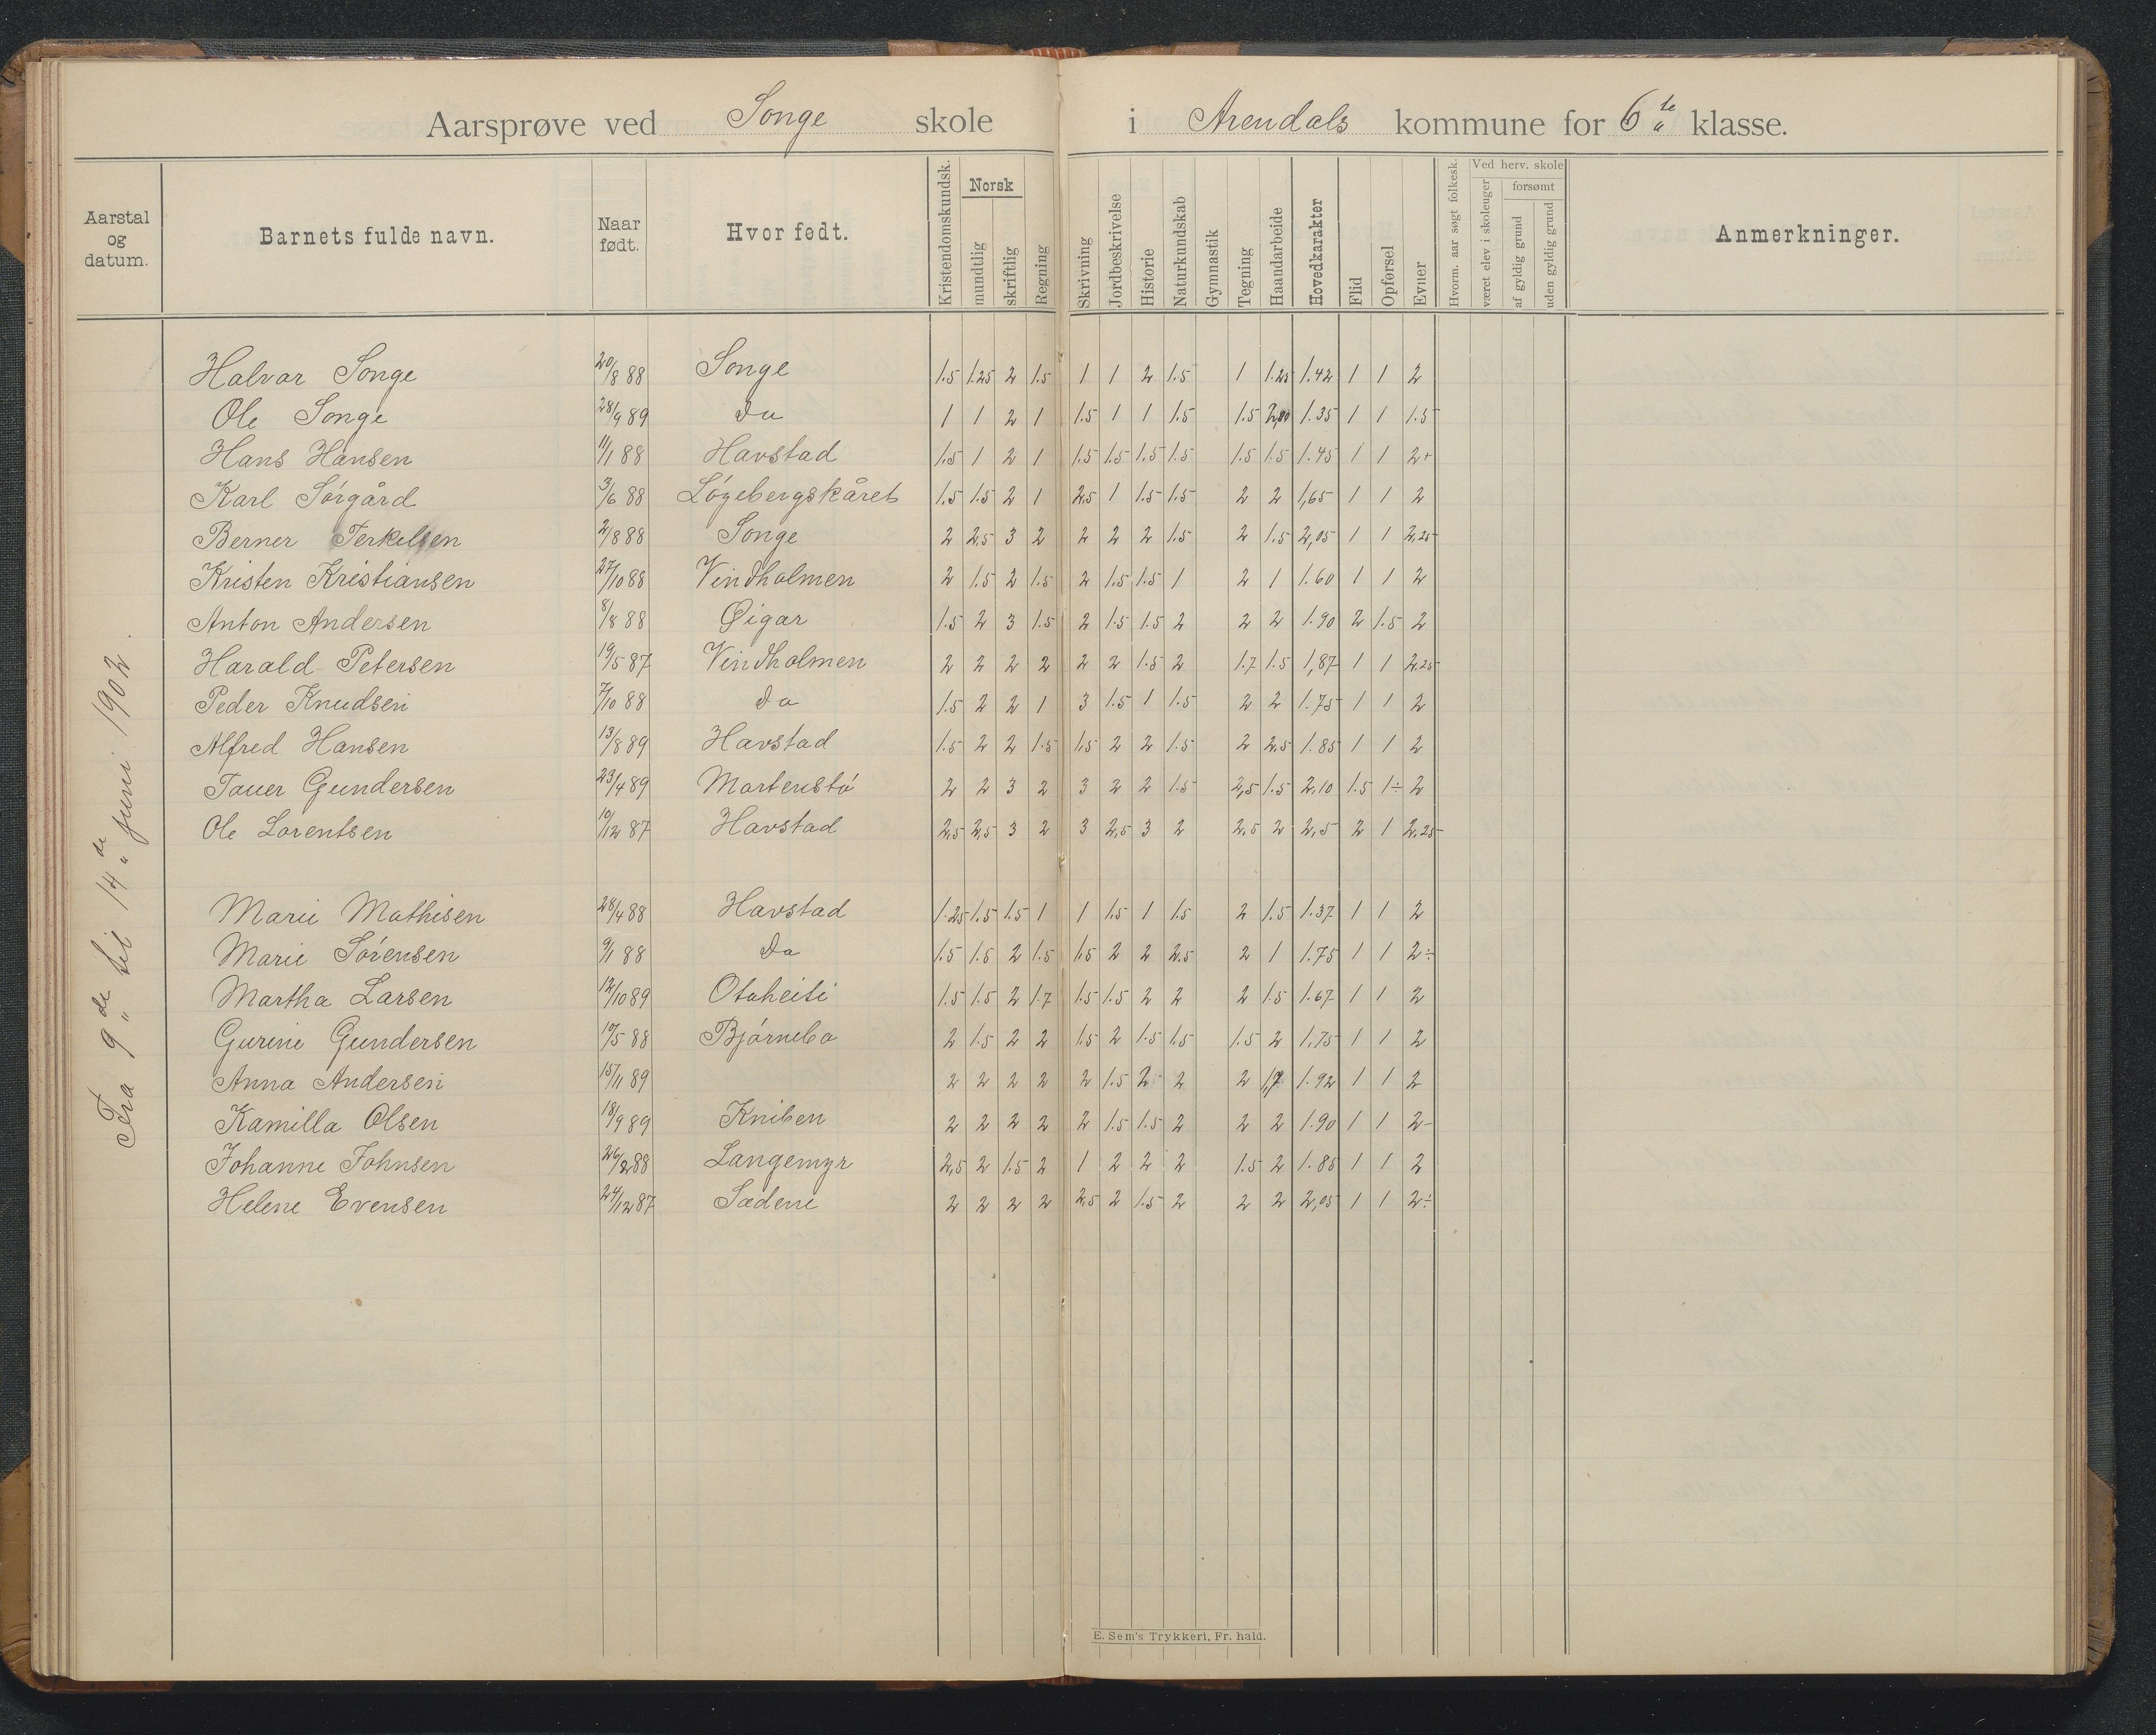 Aarsprøve ved Songe skole i Arendals kommune for 6te klasse.
Aarstal og datum. Barnets fulde navn. Naar født. Hvor født. Kristendomskundsk. Norsk mundtlig skriftlig Regning Skrivning Jordbeskrivelse Historie Naturkundskab Gymnastik Tegning Haandarbeide Hovedkarakter Flid Opførsel Evner Hvorm. aar søgt folkesk. Ved herv. skole været elev i skoleuger forsømt af gyldig grund uden gyldig grund Anmerkninger.
Fra 9de til 14de juni 1902.
Halvar Songe 20/8 88 Songe 1.5 1.25 2 1.5 1 1 2 1.5 1 1.25 1.42 1 1 2
Ole Songe 28/9 89 Do 1 1 2 1 1.5 1 1 1.5 1.5 1.35 1 1 1.5
Hans Hansen 11/1 88 Havstad 1.5 1 2 1 1.5 1.5 1.5 1.5 1.5 1.5 1.45 1 1 2+
Karl Sørgård 3/6 88 Løgebergskåret 1.5 1.5 2 1 2.5 1 1.5 1.5 2 2 1,65 1 1 2
Berner Terkelsen 2/8 88 Songe 2 2.5 3 2 2 2 2 1.5 2 1.5 2,05 1 1 2,25
Kristen Kristiansen 27/10 88 Vindholmen 2 1.5 2 1.5 2 1.5 1.5 1 2 1 1.60 1 1 2
Anton Andersen 8/8 88 Øigar 1.5 2 3 1.5 2 1.5 1.5 2 2 2 1.90 2 1.5 2
Harald Petersen 19/5 87 Vindholmen 2 2 2 2 2 2 1.5 2 1.7 1.5 1,87 1 1 2,25
Peder Knudsen 7/10 88 Do 1.5 2 2 1 3 1.5 1 1.5 2 2 1.75 1 1 2
Alfred Hansen 13/8 89 Havstad 1.5 2 2 1.5 1.5 2 2 1.5 2 2.5 1.85 1 1 2
Tauer Gundersen 23/4 89 Mortenstø 2 2 3 2 3 2 2 1.5 2,5 1.5 2,10 1.5 1÷ 2
Ole Lorentsen 10/12 87 Havstad 2,5 2,5 3 2 3 2,5 3 2 2,5 2 2,5 2 1 2,25
Marie Mathisen 28/4 88 Havstad 1.25 1.5 1.5 1 1 1.5 1 1.5 2 1.5 1.37 1 1 2
Marie Sørensen 9/1 88 Do 1.5 1.5 2 1.5 1.5 2 2 2.5 2 1 1.75 1 1 2÷
Martha Larsen 12/10 89 Otaheiti 1.5 1.5 2 1.7 1.5 1.5 2 2 2 1.5 1.67 1 1 2
Gurine Gundersen 10/5 88 Bjørnebo 2 1.5 2 2 1.5 2 1.5 1.5 1.5 2 1,75 1 1 2
Anna Andersen 15/11 89 2 2 2 2 2 1.5 2 2 2 1,7 1.92 1 1 2
Kamilla Olsen 18/9 89 Kniben 2 2 2 2 2 1.5 1.5 2 2 2 1.90 1 1 2-
Johanne Johnsen 26/2 88 Langemyr 2,5 2 1.5 2 1 2 2 2 1.5 2 1.85 1 1 2
Helene Evensen 24/12 87 Sædene 2 2 2 2 2,5 2 1.5 2 2 2 2,05 1 1 2÷
E. Sem's Trykkeri, Fr. hald.